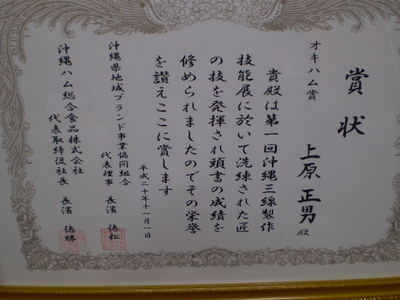 賞状
オキハム賞
上原正男殿
貴殿は第一回沖縄三線製作
技能展に於いて洗練された匠
の技を発揮され頭書の成績を
修められましたのでその栄誉
を讃えここに賞します
平成二十年十一月一日
沖縄県地域ブランド事業協同組合
代表理事 長濱 徳松
沖縄ハム総合食品株式会社
代表取締役社長 長濱 徳勝